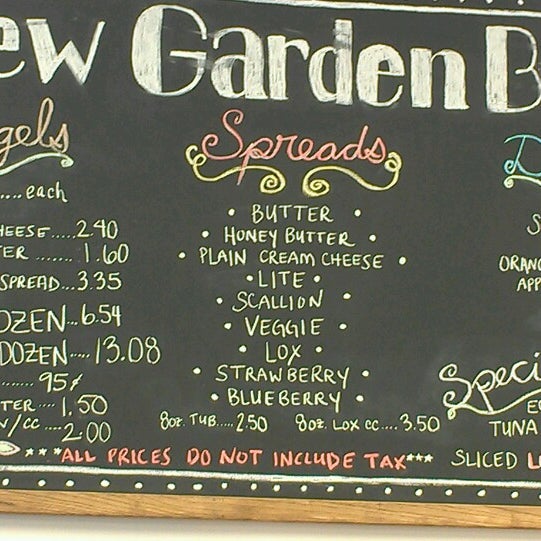 ew Garden B
gels
....each
HEESE.....2.40
TER ........ 1.60
SPREAD...3.35
OZEN...6.54
DOZEN....13.08
........ 95¢
TER .... 1.50
/CC ....2.00
Spreads
• BUTTER •
• HONEY BUTTER •
• PLAIN CREAM CHEESE •
• LITE •
• SCALLION •
• VEGGIE •
• LOX •
• STRAWBERRY •
• BLUEBERRY •
8oz. TUB.....2.50 8oz. LOX CC....3.50
***ALL PRICES DO NOT INCLUDE TAX***
D
S
ORANG
APP
Speci
EG
TUNA
SLICED L